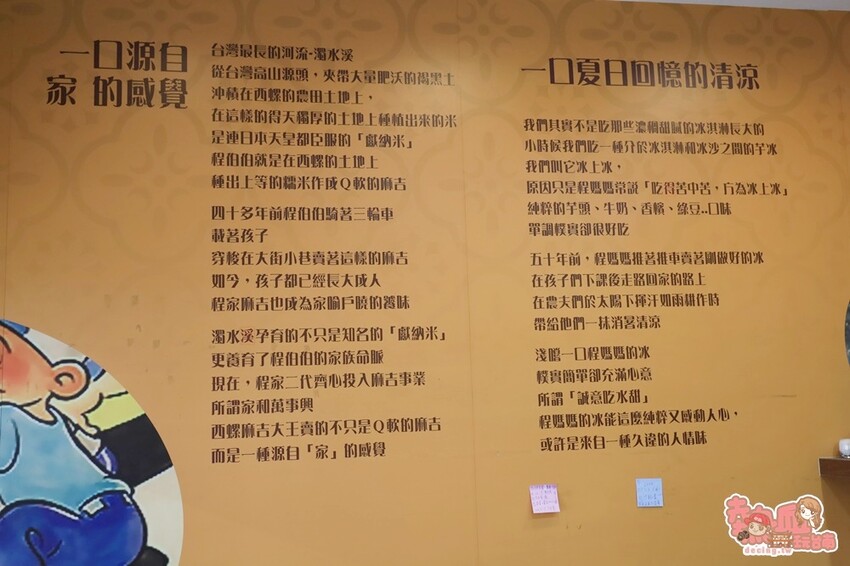 一口源自
家 的感覺
台灣最長的河流-濁水溪
從台灣高山源頭，夾帶大量肥沃的褐黑土
沖積在西螺的農田土地上，
在這樣的得天獨厚的土地上種植出來的米
是連日本天皇都臣服的「獻納米」
程伯伯就是在西螺的土地上
種出上等的糯米作成Q軟的麻吉
四十多年前程伯伯騎著三輪車
載著孩子
穿梭在大街小巷賣著這樣的麻吉
如今，孩子都已經長大成人
程家麻吉也成為家喻戶曉的饕味
濁水溪孕育的不只是知名的「獻納米」
更養育了程伯伯的家族命脈
現在，程家二代齊心投入麻吉事業
所謂家和萬事興
西螺麻吉大王賣的不只是Q軟的麻吉
而是一種源自「家」的感覺
一口夏日回憶的清涼
我們其實不是吃那些濃稠甜膩的冰淇淋長大的
小時候我們吃一種介於冰淇淋和冰沙之間的芋冰
我們叫它冰上冰，
原因只是程媽媽常說「吃得苦中苦，方為冰上冰」
純粹的芋頭、牛奶、香檳、綠豆..口味
單調樸實卻很好吃
五十年前，程媽媽推著推車賣著剛做好的冰
在孩子們下課後走路回家的路上
在農夫們於太陽下揮汗如雨耕作時
帶給他們一抹消暑清涼
淺嚐一口程媽媽的冰
樸實簡單卻充滿心意
所謂「誠意吃水甜」
程媽媽的冰能這麼純粹又感動人心，
或許是來自一種久違的人情味
熱血玩台南
decing.tw